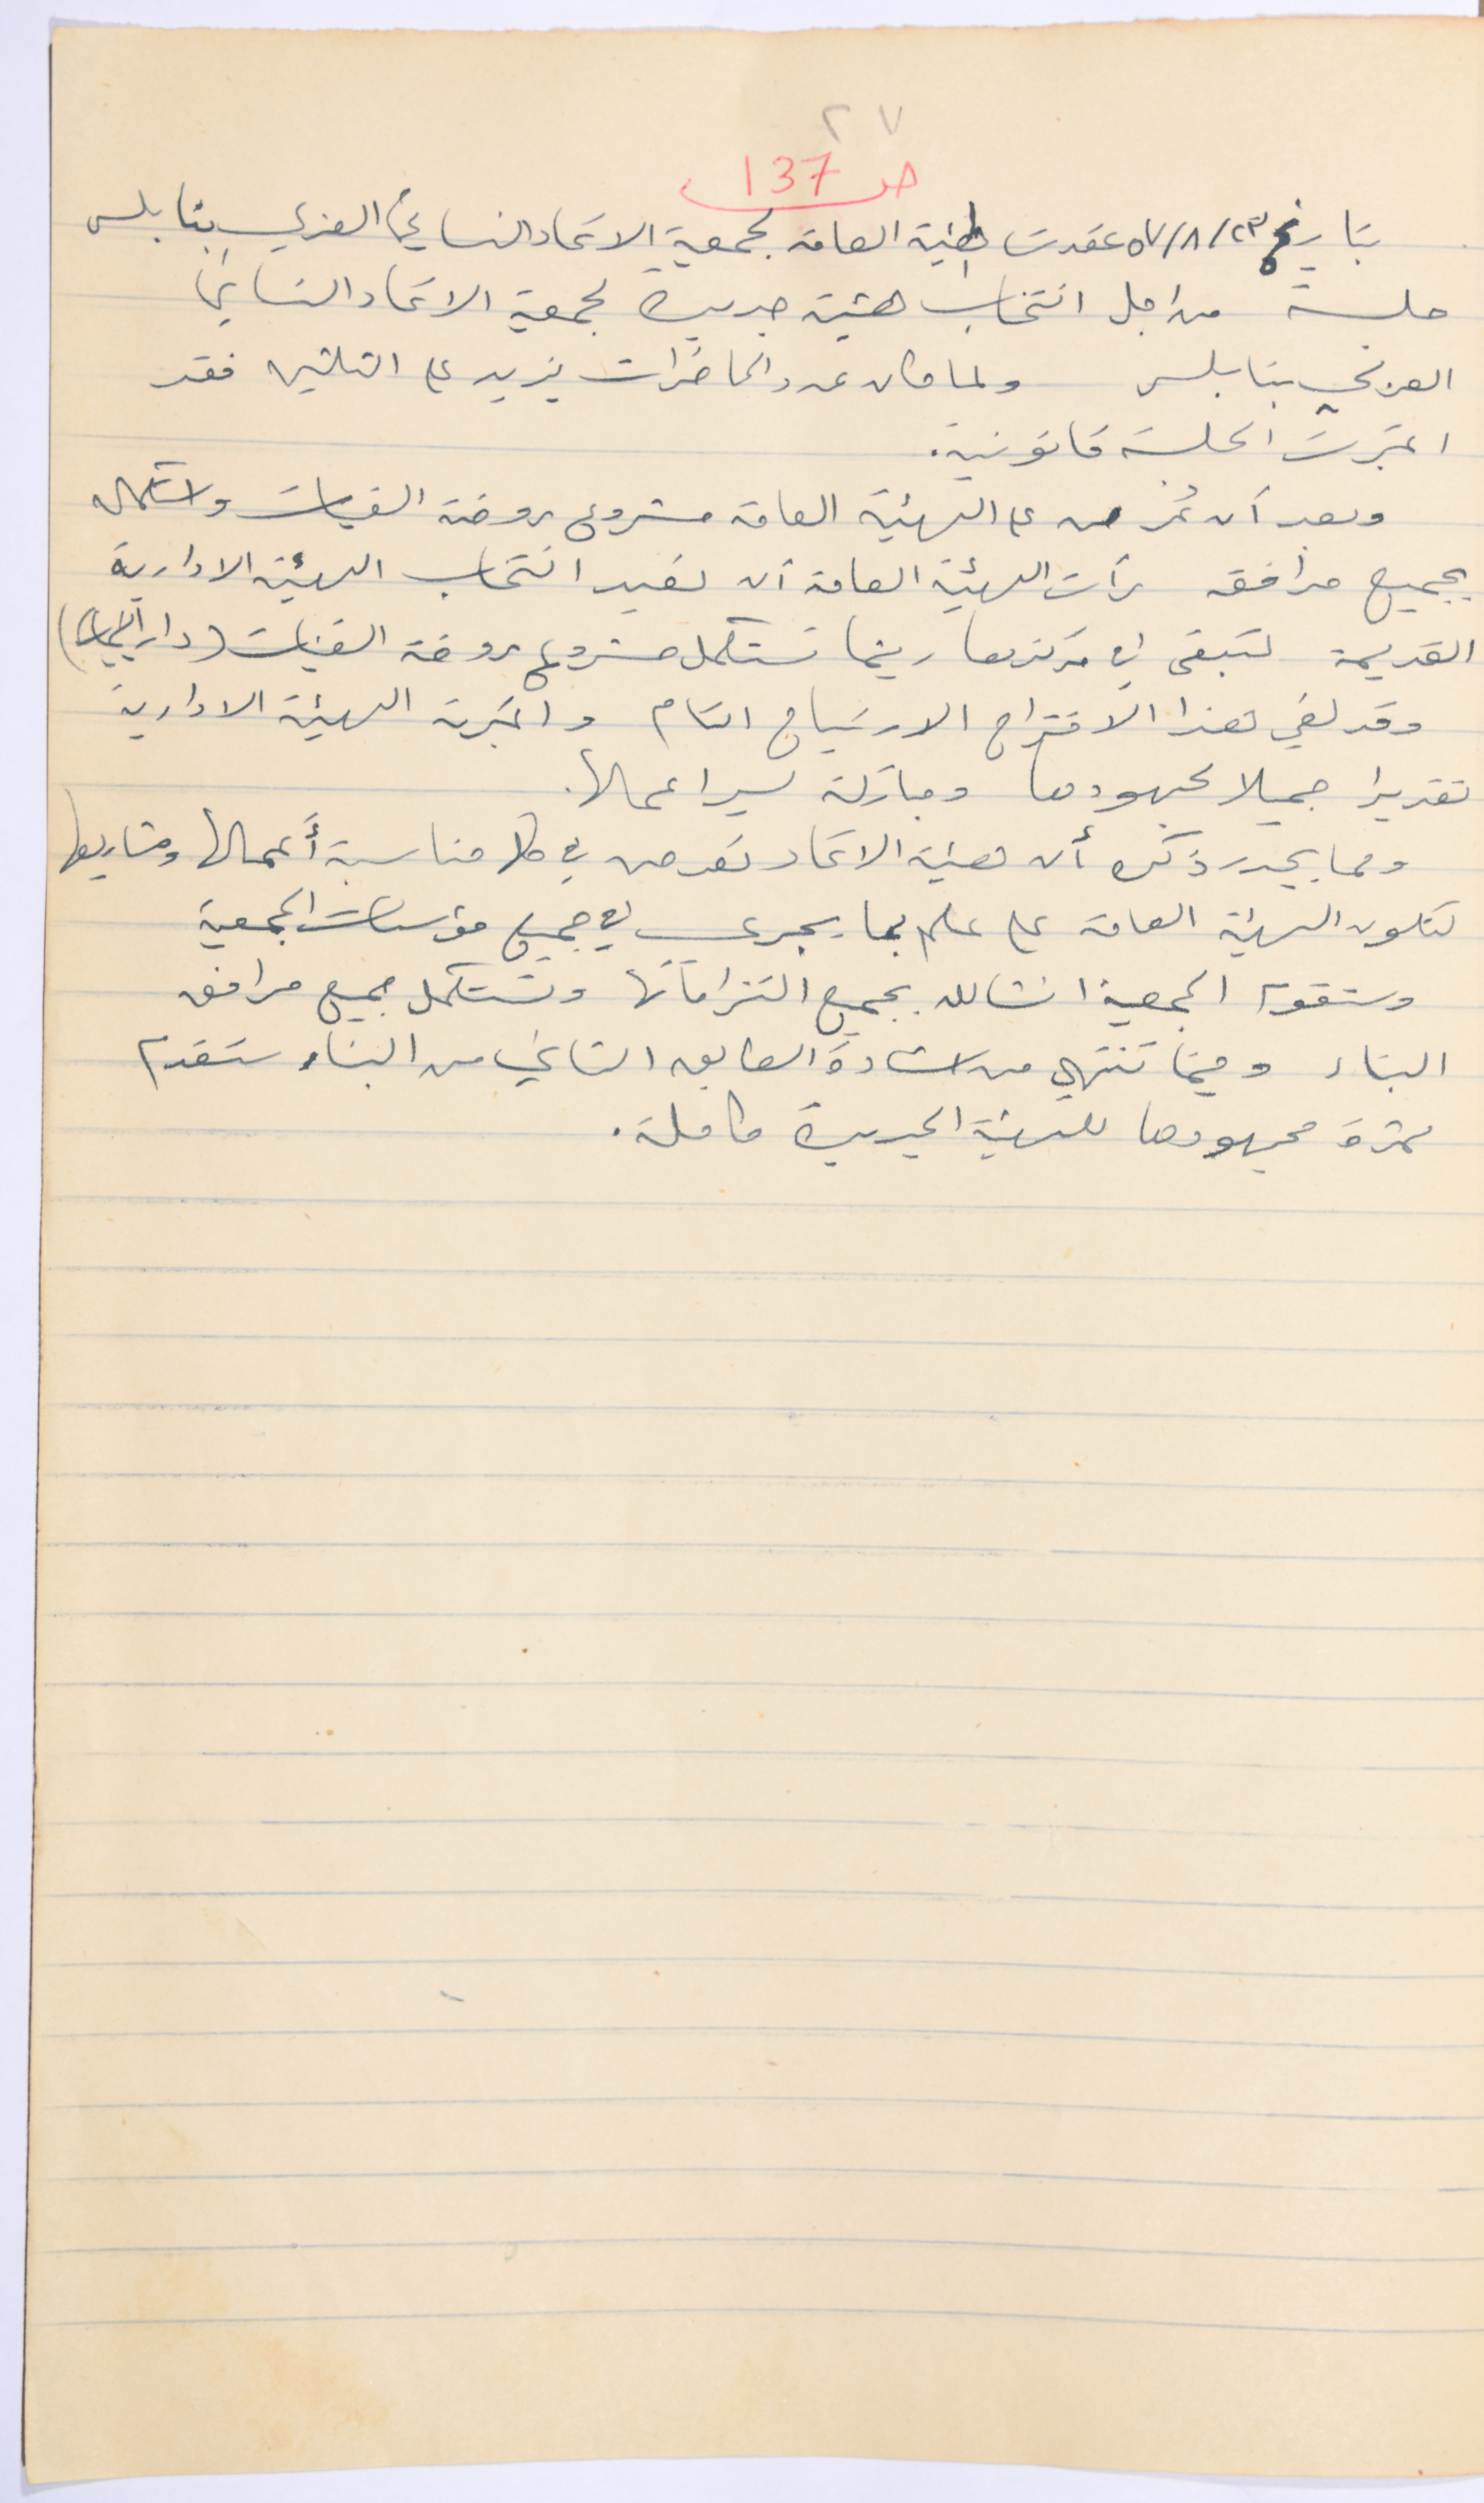 ٢٧
ص 137
بتاريخ ٥٧/٨/٢٣ عقدت الهيئة العامة لجمعية الاتحاد النسائي العربي بنابلس
جلسة من اجل انتخاب هيئة جديدة لجمعية الاتحاد النسائي
العربي بنابلس ولما كان عدد الحاضرات يزيد على الثلثين فقد
اعتبرت الجلسة قانونية.
وبعد أن عُرض على الهيئة العامة مشروع روضة الفتيات واستكمال
جميع مرافقه رأت الهيئة العامة أن تعيد انتخاب الهيئة الادارية
القديمة لتبقى في مركزها ريثما تستكمل مشروع روضة الفتيات (دار اليتيمات)
وقد لقي هذا الاقتراح الارتياح التام واعتبرته الهيئة الادارية
تقديرا جميلا لمجهودها ومباركة لسير اعمالها.
ومما يجدر ذكره أن هيئة الاتحاد تعرض في كل مناسبة أعمالها ومشاريعها
لتكون الهيئة العامة على علم بما يجري في جميع مؤسسات الجمعية
وستقوم الجمعية انشالله بجميع التزاماتها وتستكمل جميع مرافق
البناء وحينما تنتهي من اشادة الطابق الثاني من البناء ستقدم
ثمرة مجهودها للهيئة الجديدة كاملة.